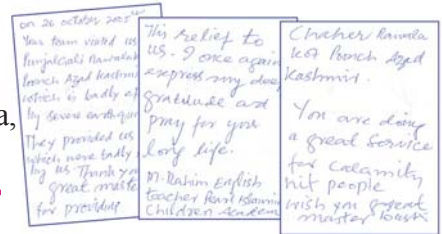 on 26 october 2005
Your team visited us
Punjgali Rawalakot
Poonch Azad Kashmir
which is badly ef
by severe earthqu
They provided us
which were badly
by us. Thank you
great maste
for providing
This relief to
us. I once again
express my deep
gratitude and
pray for your
long life.
M. Rahim English
teacher Pearl
Children Academ
Chaher Rawala
kot Poonch Azad
Kashmir.
You are doing
a great service
for calamity
hit people
wish you great
master
a,